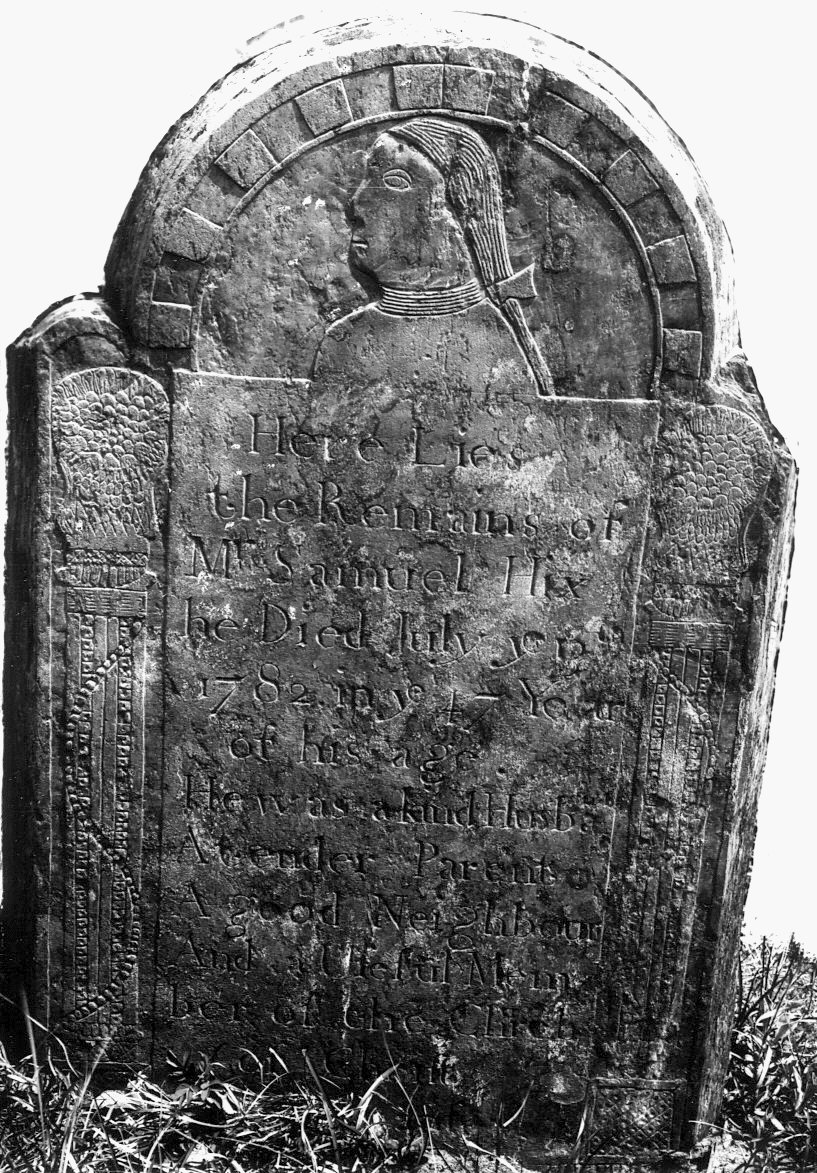 Here Lies
the Remains of
Mr. Samuel Hix
he Died July ye 11th
1782 in ye 47 Year
of his age
He was a kind Husbad
A tender Parent
A good Neighbour
And a Useful Mem
ber of the Chrch